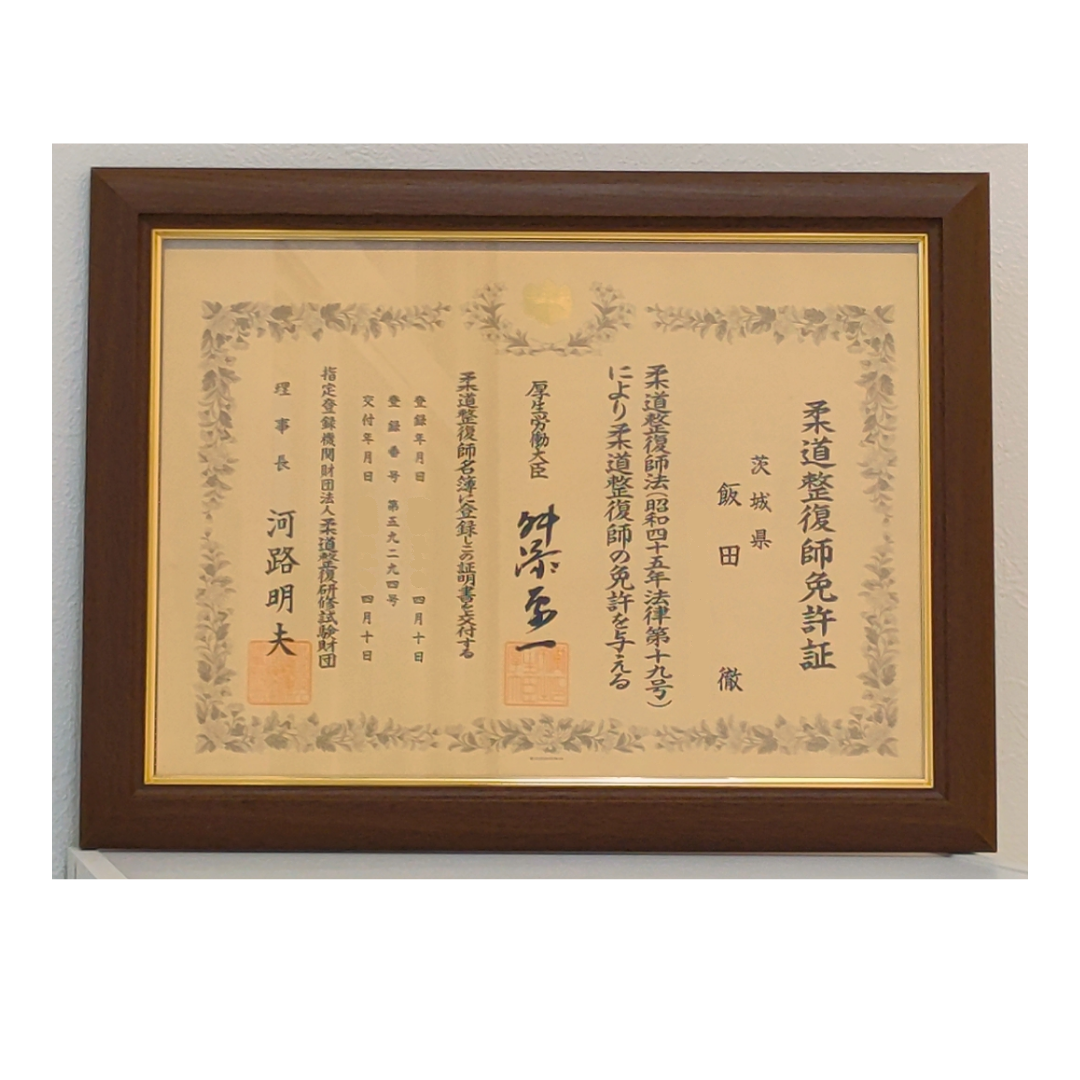 柔道整復師免許証
茨城県
飯田 徹
柔道整復師法(昭和四十五年法律第十九号)
により柔道整復師の免許を与える
厚生労働大臣 舛添要一
柔道整復師名簿に登録しこの証明書を交付する
登録年月日 四月十日
登録番号 第五九二九四号
交付年月日 四月十日
指定登録機関財団法人柔道整復研修試験財団
理事長 河路明夫